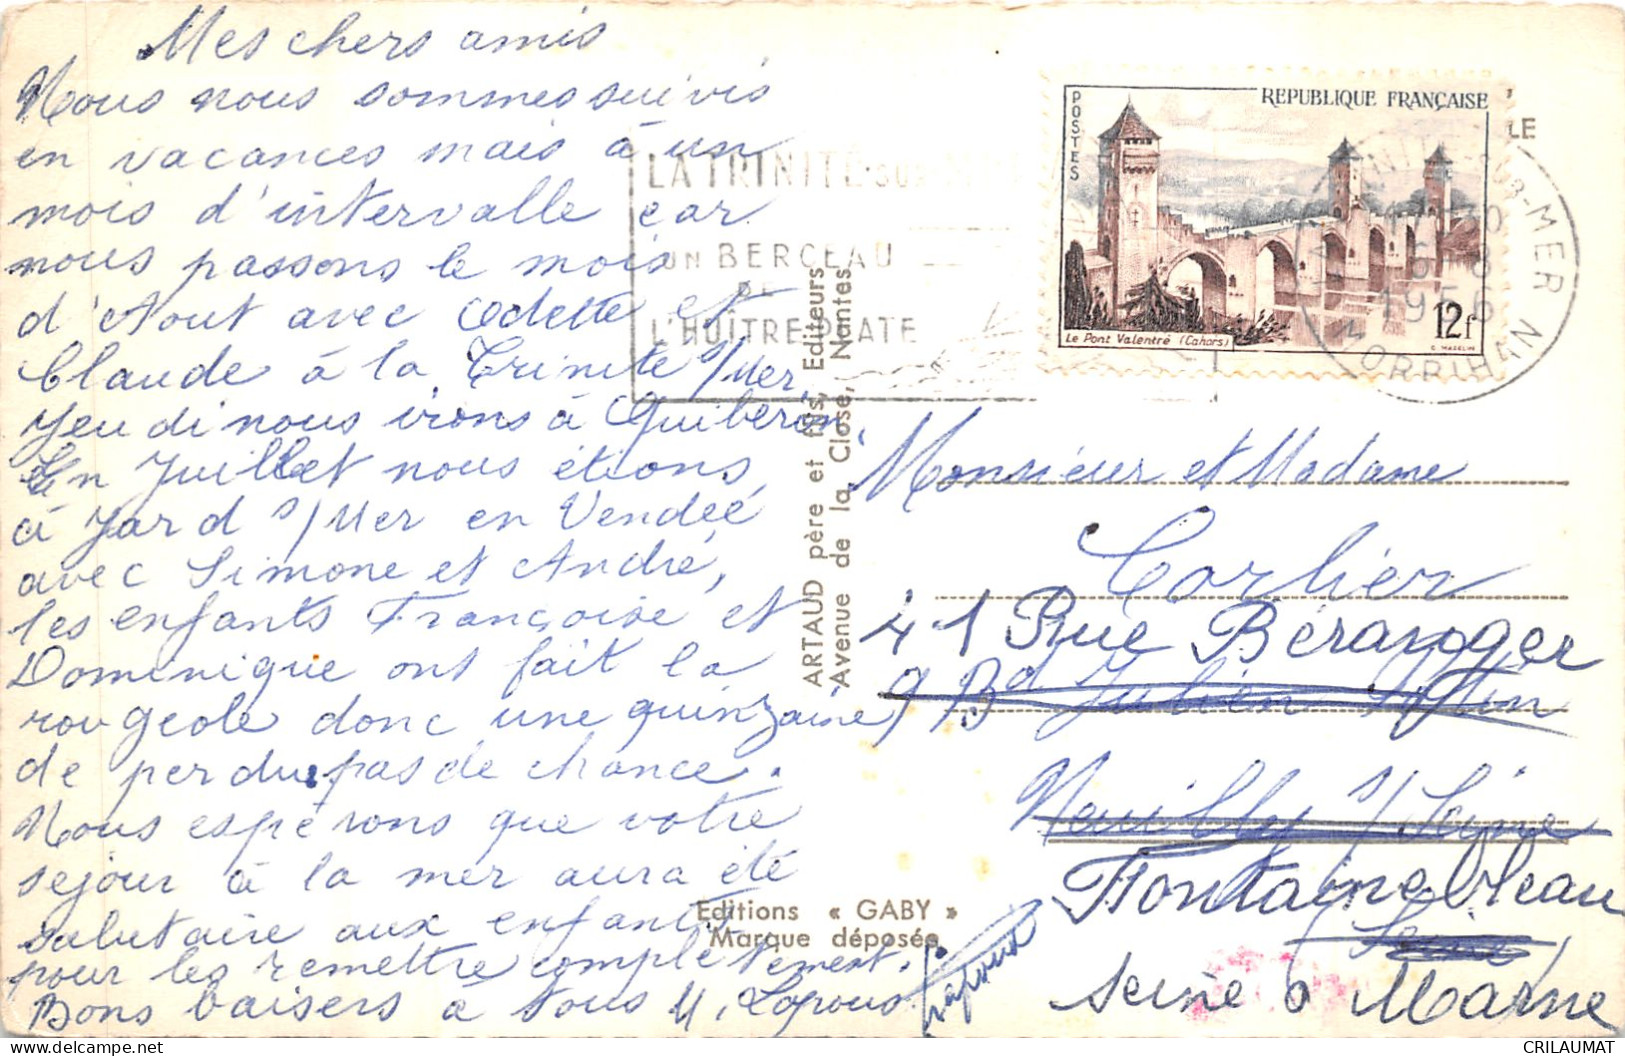 Mes chers amis
Nous nous sommes suivis
en vacances mais à un
mois d'intervalle car
nous passons le mois
d'Aout avec Odette et
Claude à la Trinité s/Mer,
Jeudi nous irons à Quiberon,
En Juillet nous étions
à Jard s/Mer en Vendée
avec Simone et André,
les enfants Françoise et
Dominique ont fait la
rougeole donc une quinzaine
de perdu, pas de chance.
Nous espérons que votre
séjour à la mer aura été
salutaire aux enfants
pour les remettre complètement.
Bons baisers à tous M. Lapous
LA TRINITÉ-SUR-MER
UN BERCEAU
DE
L'HUÎTRE PLATE
POSTES
REPUBLIQUE FRANÇAISE
Le Pont Valentré (Cahors)
12f
LE
TRINITÉ-SUR-MER
6-8
1956
MORBIHAN
ARTAUD père et fils, Editeurs
Avenue de la Close, Nantes
Editions « GABY »
Marque déposée
Monsieur et Madame
Corlier
41 Rue Béranger
9 Bd Julien
Neuilly s/Seine
Fontainebleau
(Seine)
Seine & Marne
CRILAUMAT